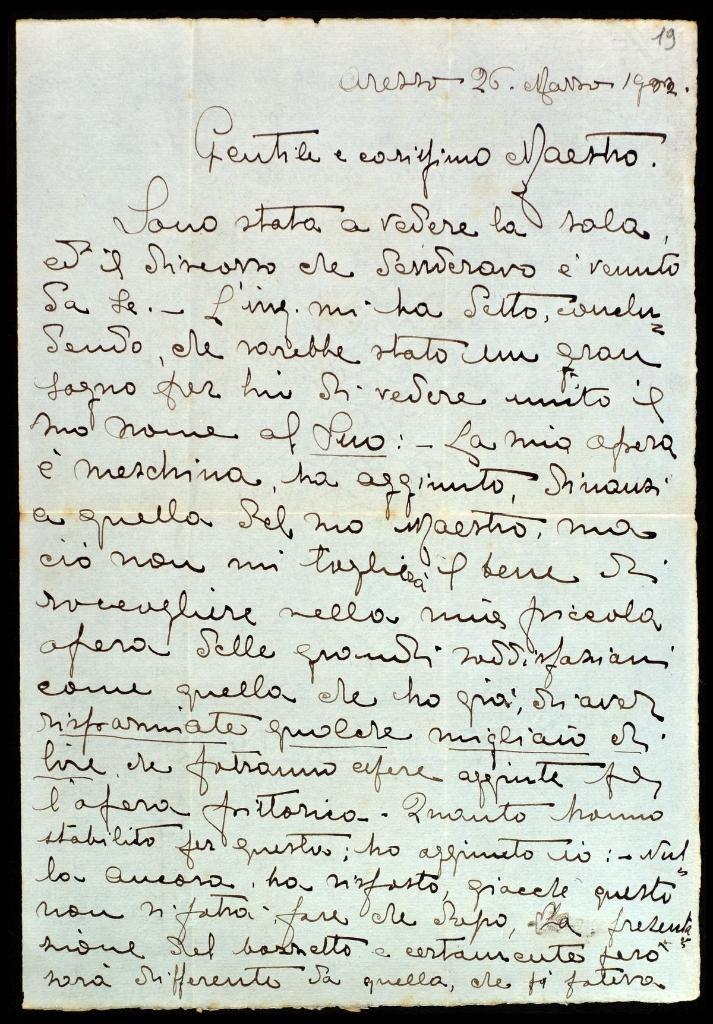 19
Arezzo 26. Marzo 1922.
Gentile e carissimo Maestro.
Sono stata a vedere la sala,
ed il discorso che desideravo è venuto
da se. - L'ing. mi ha detto, conclu=
dendo, che sarebbe stato un gran
sogno per lui di vedere unito il
suo nome al Suo: - La mia opera
è meschina, ha aggiunto, dinanzi
a quella del suo Maestro, ma
ciò non mi toglierà il bene di
raccogliere nella mia piccola
opera delle grandi soddisfazioni
come quella che ho già, di aver
risparmiate qualche migliaio di
lire, che potranno essere aggiunte per
l'opera pittorica. - Quanto hanno
stabilito per questa; ho aggiunto io: - Nul=
la ancora, ha risposto, giacchè questo
non si potrà fare che dopo, la presenta=
zione del bozzetto e certamente però
sarà differente da quella, che si poteva